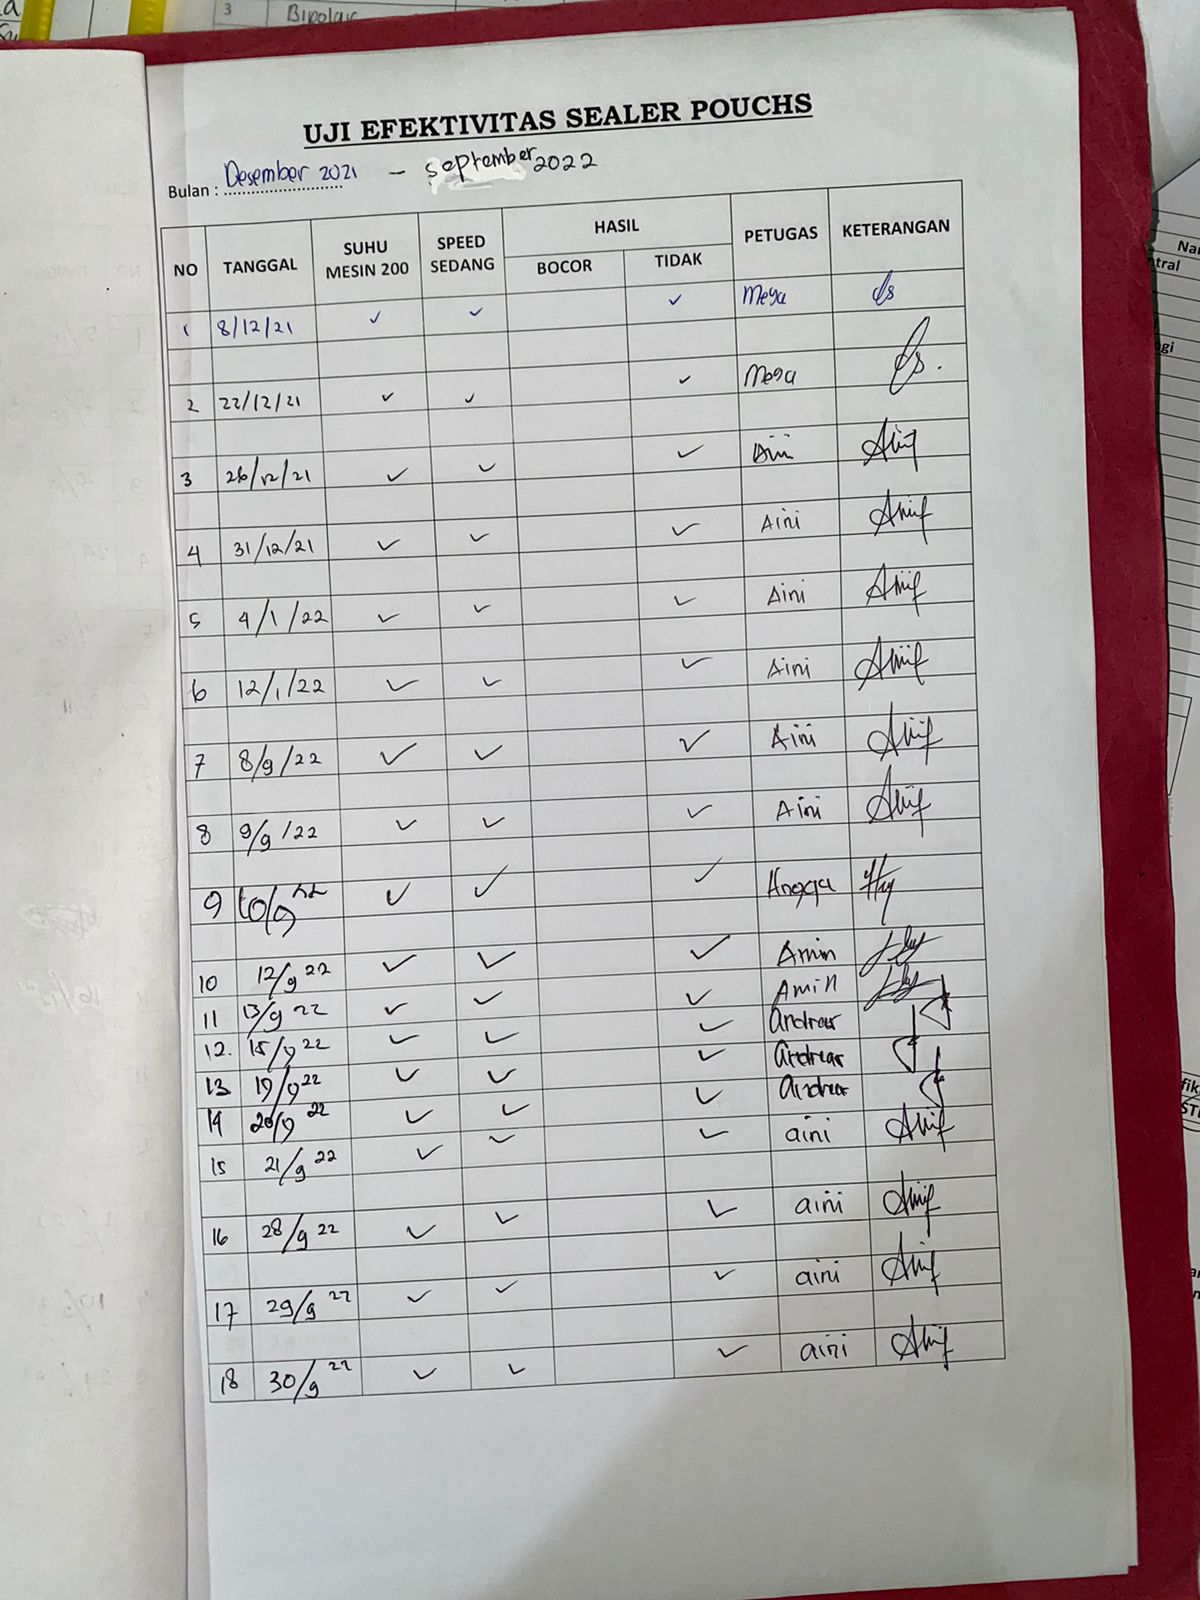 3 Bipolar
UJI EFEKTIVITAS SEALER POUCHS
Bulan : Desember 2021 - September 2022
NO TANGGAL SUHU MESIN 200 SPEED SEDANG HASIL BOCOR TIDAK PETUGAS KETERANGAN
1 8/12/21 ✓ ✓ ✓ Mega
2 22/12/21 ✓ ✓ ✓ Mega
3 26/12/21 ✓ ✓ ✓ Aini
4 31/12/21 ✓ ✓ ✓ Aini
5 4/1/22 ✓ ✓ ✓ Aini
6 12/1/22 ✓ ✓ ✓ Aini
7 8/9/22 ✓ ✓ ✓ Aini
8 9/9/22 ✓ ✓ ✓ Aini
9 10/9 22 ✓ ✓ ✓ Angga
10 12/9 22 ✓ ✓ ✓ Amin
11 13/9 22 ✓ ✓ ✓ Amin
12. 15/9 22 ✓ ✓ ✓ Andreas
13 19/9 22 ✓ ✓ ✓ Andreas
14 20/9 22 ✓ ✓ ✓ Andreas
15 21/9 22 ✓ ✓ ✓ aini
16 28/9 22 ✓ ✓ ✓ aini
17 29/9 22 ✓ ✓ ✓ aini
18 30/9 22 ✓ ✓ ✓ aini